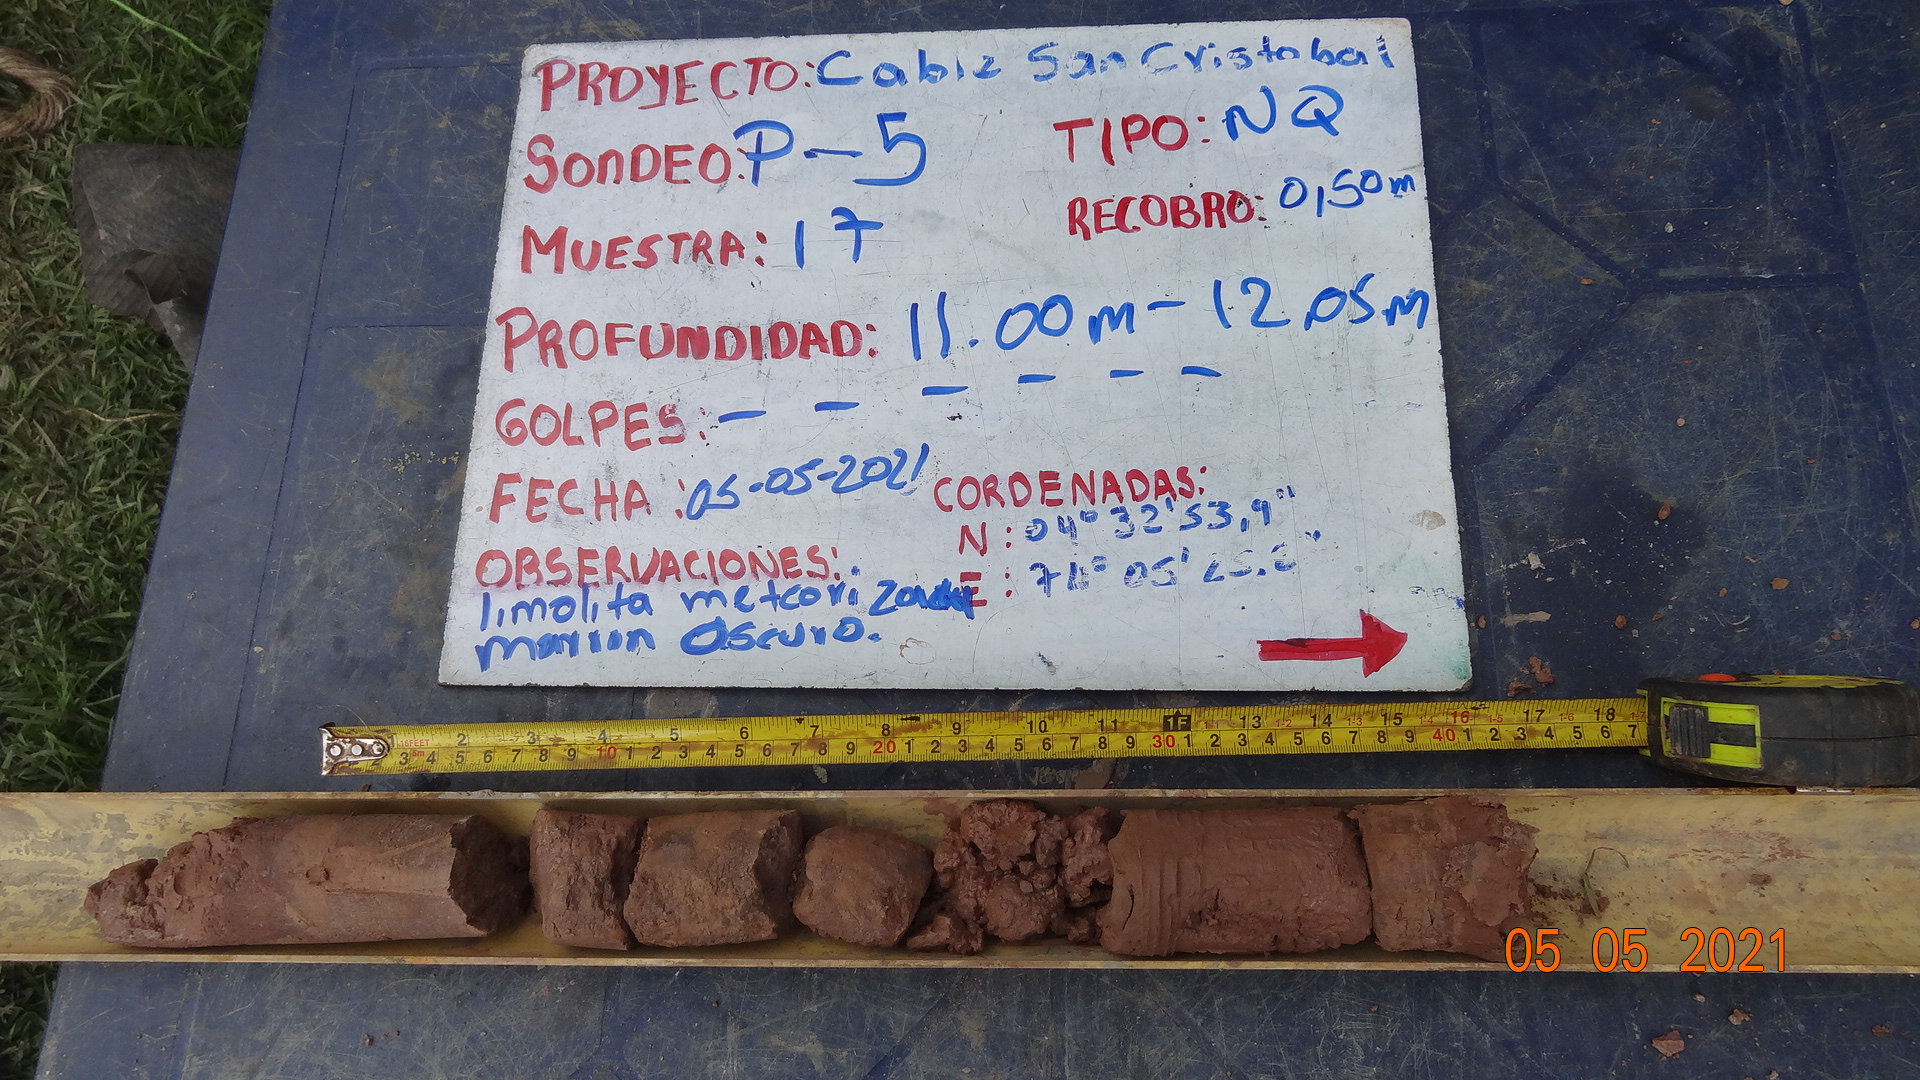 PROYECTO: Cable San Cristobal
SONDEO: P-5 TIPO: NQ
MUESTRA: 17 RECOBRO: 0,50m
PROFUNDIDAD: 11.00m - 12,05m
GOLPES: - - - - - -
FECHA: 05-05-2021 CORDENADAS:
N: 04° 32' 53,9"
OBSERVACIONES: E: 05'
limolita meteorizada
marron oscuro.
16FEET 2 3 4 5 6 7 8 9 10 11 1F 13 14 15 16 17 18
5m 3 4 5 6 7 8 9 10 1 2 3 4 5 6 7 8 9 20 1 2 3 4 5 6 7 8 9 30 1 2 3 4 5 6 7 8 9 40 1 2 3 4 5 6 7
05 05 2021